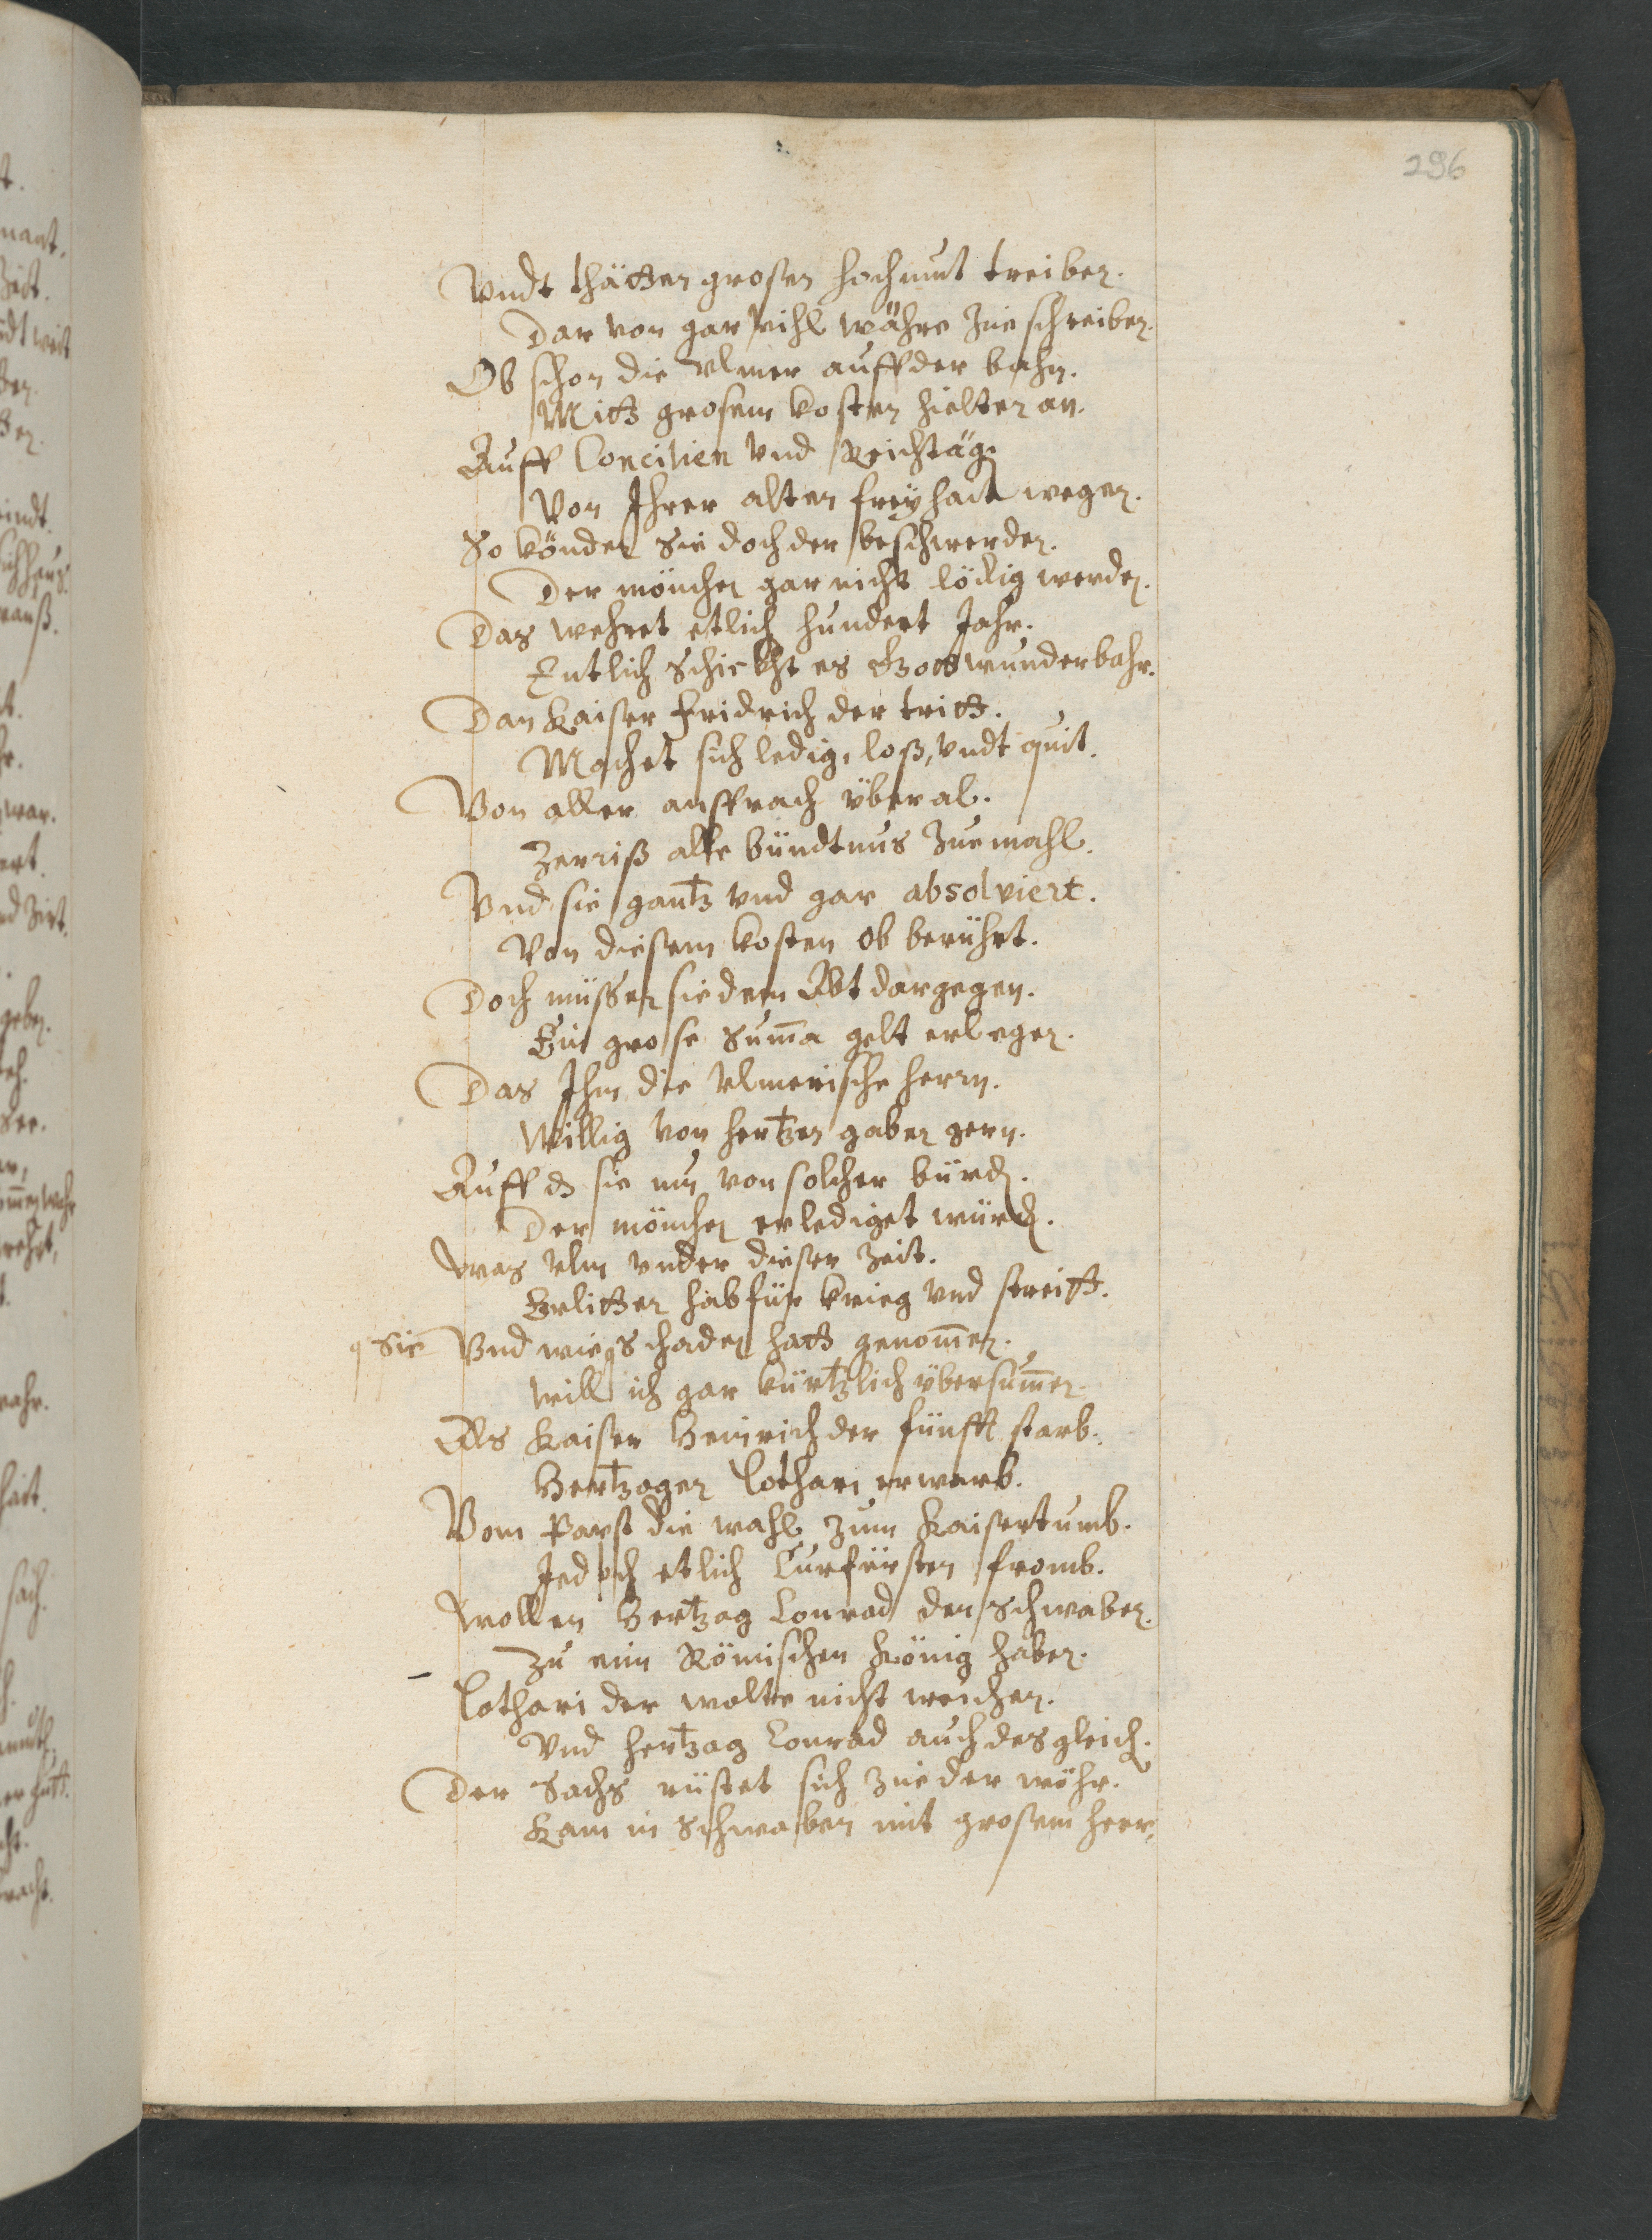 296
Vndt thätten grosen hochmut treiben.
Dar von gar vihl währe zue schreiben.
Ob schon die Vlmer auff der bahn.
Mitt grosem kosten hielten an.
Auff Concilien vnd Reichtäg
Von Ihrer alten freyhait wegen.
So könden sie doch der beschwerden.
Der mönchen gar nicht lödig werden.
Das wehret etlich hundert Jahr.
Entlich schickht es Gott wunderbahr.
Dan Kaiser Fridrich der tritt.
Machet sich ledig, loß, vndt quit.
Von aller ansprach überal.
Zerriß alle bündtnus zue mahl.
Vnd sie gantz vnd gar absolviert.
Von diesem kosten ob berührt.
Doch müssen sie dem Abt dargegen.
Ein grose Sum̄a gelt erlegen.
Das Ihm die Vlmerische herrn.
Willig von hertzen gaben gern.
Auff ds sie nu von solcher bürd.
Der mönchen erlediget würd.
Was Vlm vnder dieser zeit.
Erlitten hab für krieg vnd streitt.
sie Vnd wie schaden hatt genom̄en.
Will ich gar kürtzlich übersum̄en.
Als Kaiser Heinrich der fünfft starb.
Hertzogen Lothari erwarb.
Vom Papst die wahl zum Kaisertumb.
Jedoch etlich Curfürsten fromb.
Wollen Hertzog Conrad den schwaben.
Zu eim Römischen König haben.
Lothari der wolte nicht weichen.
Vnd hertzog Conrad auch desgleich.
Der Sachs rüstet sich zue der wöhr.
Kam in Schwaben mit grosem heer.